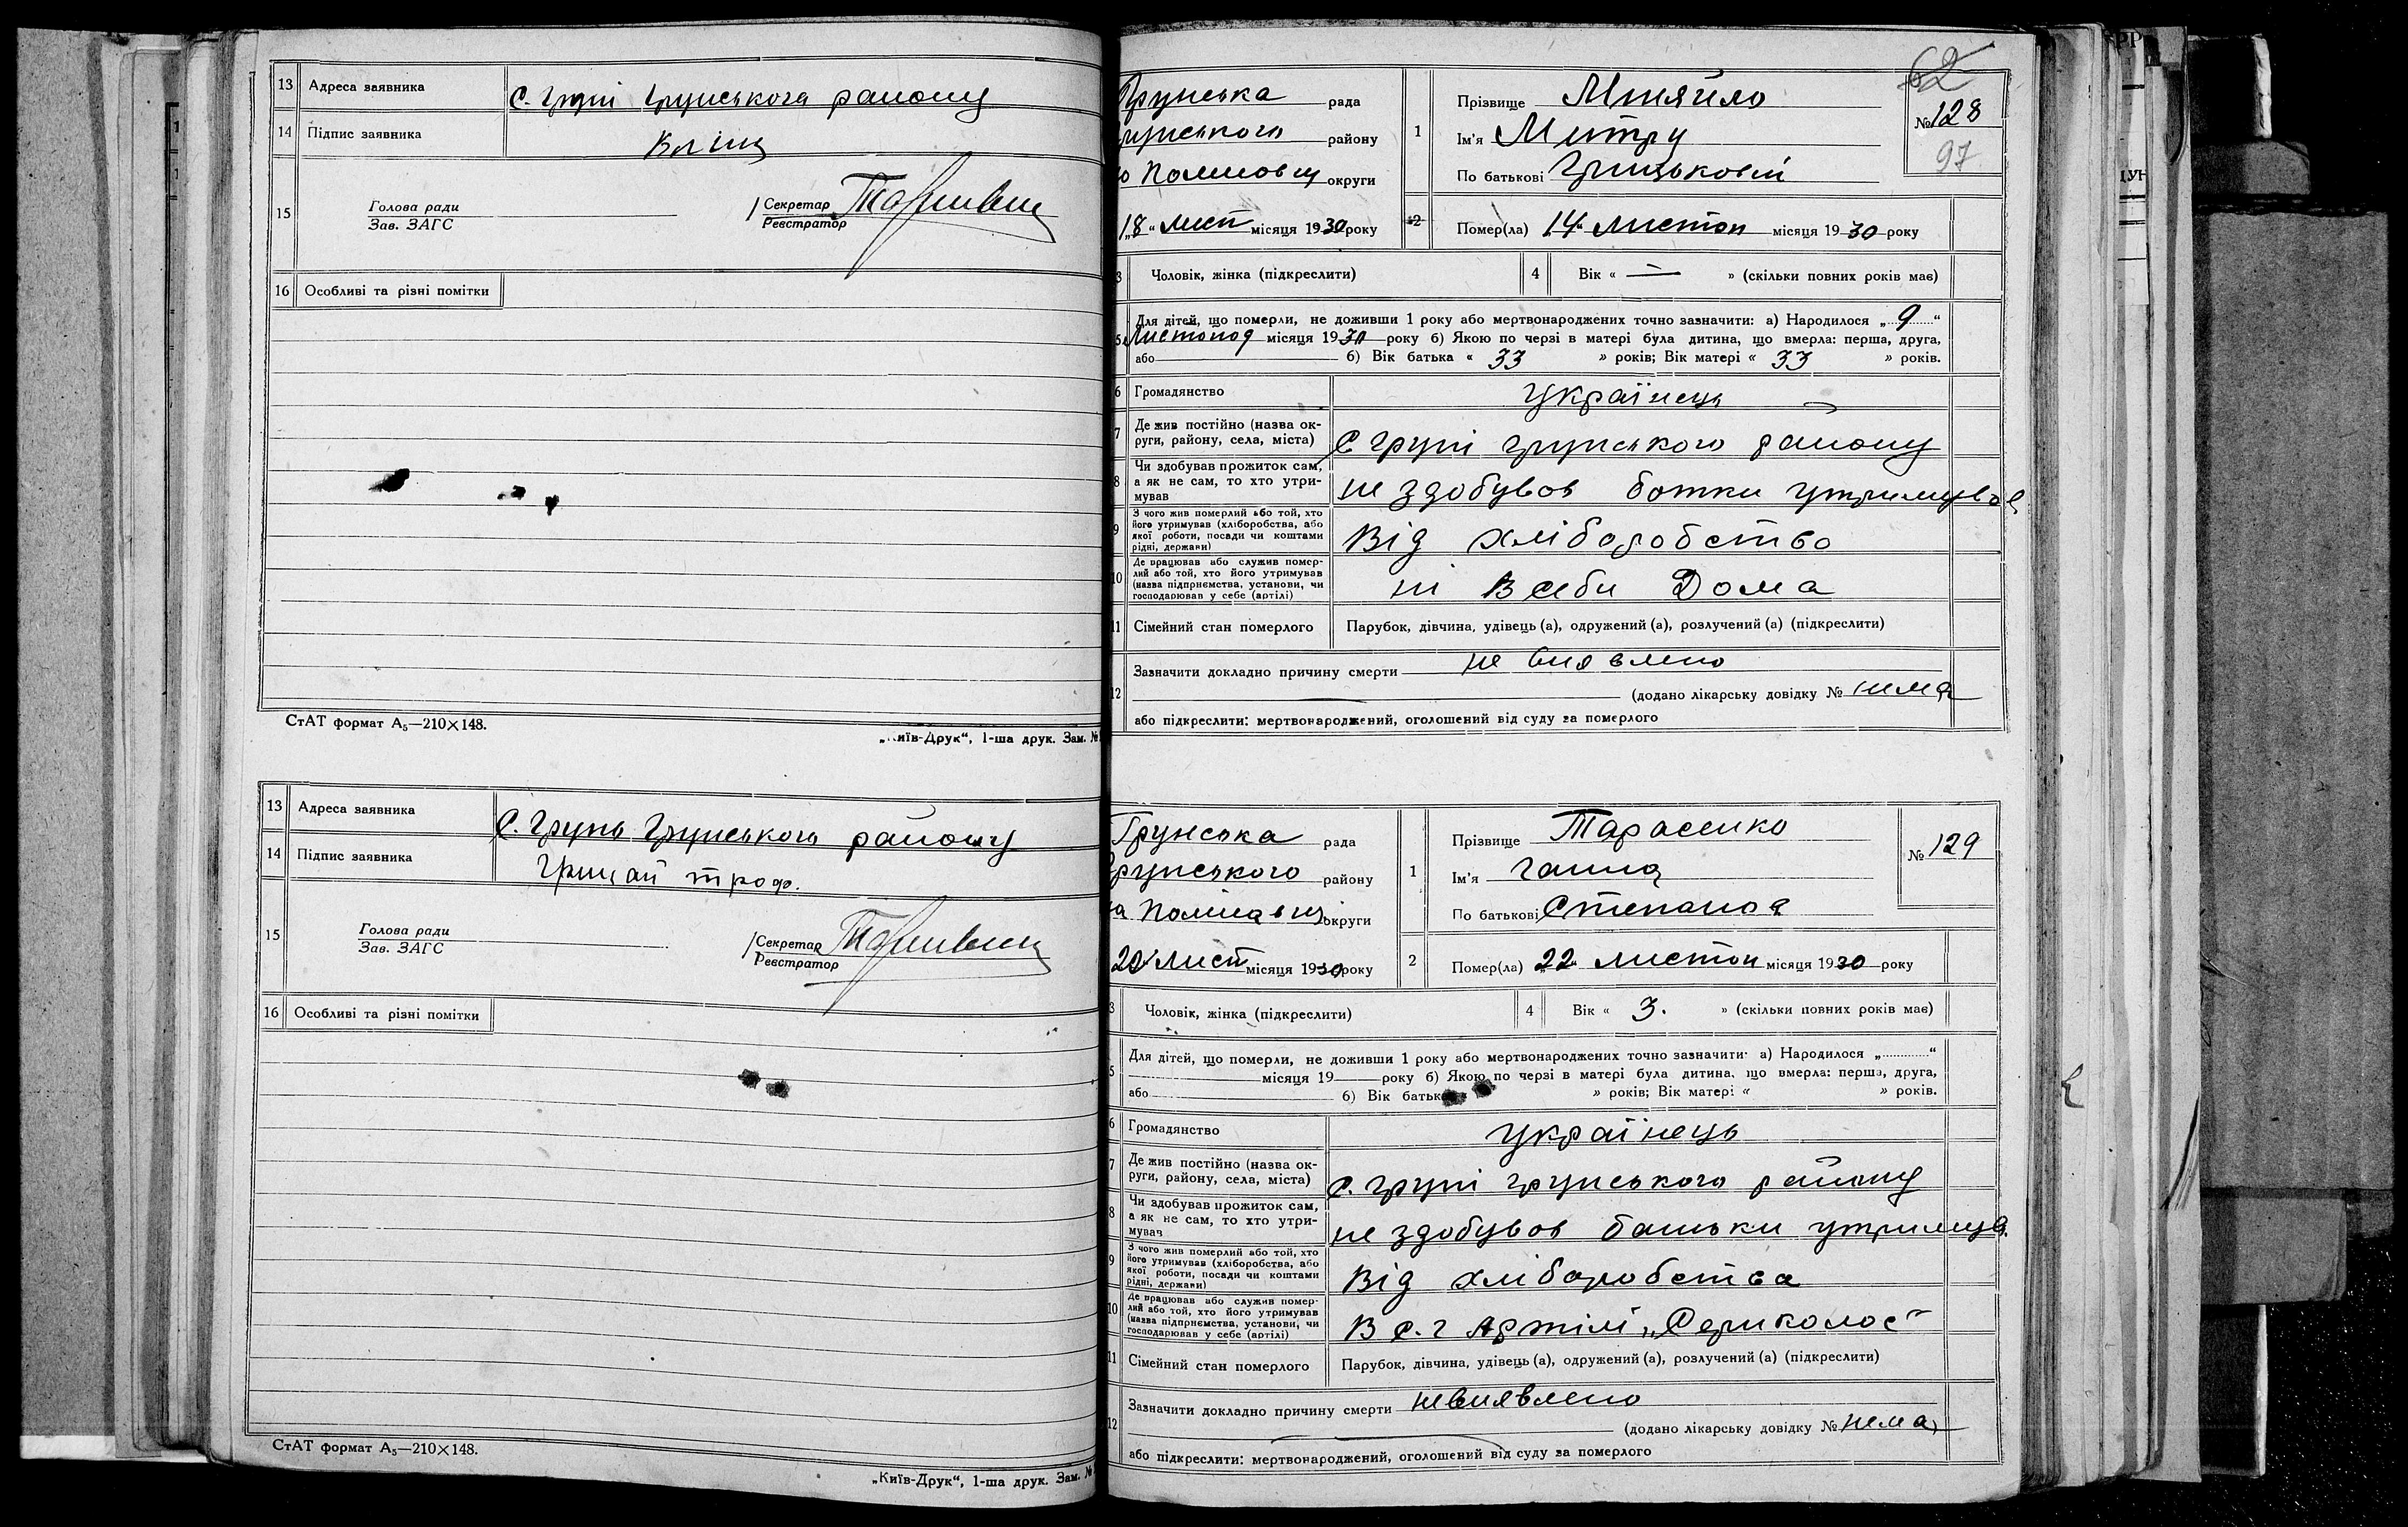 13 Адреса заявника С. Групі Групського району
14 Підпис заявника
15 Голова ради
Зав. ЗАГС
Секретар
Реєстратор
16 Особливі та різні помітки
СтАТ формат А₅—210×148.
„Київ-Друк“, 1-ша друк. Зам. №
13 Адреса заявника С. Групь Групського району
14 Підпис заявника Грицай троф.
15 Голова ради
Зав. ЗАГС
Секретар
Реєстратор
16 Особливі та різні помітки
СтАТ формат А₅—210×148.
„Київ-Друк“, 1-ша друк. Зам. №
62
Грунська рада
рунського району
округи
„18“ лист місяця 1930 року
1 Прізвище Митяйло
Ім'я Митру
По батькові Грицькові
№ 128
97
2 Помер(ла) 14 листоп місяця 1930 року
3 Чоловік, жінка (підкреслити) 4 Вік « — » (скільки повних років має)
5 Для дітей, що померли, не доживши 1 року або мертвонароджених точно зазначити: а) Народилося „9“
Листопод місяця 1930 року б) Якою по черзі в матері була дитина, що вмерла: перша, друга,
або б) Вік батька « 33 » років; Вік матері « 33 » років.
6 Громадянство Українець
7 Де жив постійно (назва ок-
руги, району, села, міста) С Групі групського району
8 Чи здобував прожиток сам,
а як не сам, то хто утри-
мував не здобував батки утримував
9 З чого жив померлий або той, хто
його утримував (хліборобства, або
якої роботи, посади чи коштами
рідні, держави) Від хліборобство
10 Де працював або служив помер-
лий або той, хто його утримував
(назва підприємства, установи, чи
господарював у себе (артілі) ні В себи Дома
11 Сімейний стан померлого Парубок, дівчина, удівець (а), одружений (а), розлучений (а) (підкреслити)
12 Зазначити докладно причину смерти не виявлено
(додано лікарську довідку № нема
або підкреслити: мертвонароджений, оголошений від суду за померлого
Грунська рада
Грунського району
округи
20 лист місяця 1930 року
1 Прізвище Тарасенко
Ім'я Ганна
По батькові Степанова
№ 129
2 Помер(ла) „22“ листоп місяця 1930 року
3 Чоловік, жінка (підкреслити) 4 Вік « 3. » (скільки повних років має)
5 Для дітей, що померли, не доживши 1 року або мертвонароджених точно зазначити: а) Народилося „ “
місяця 19 року б) Якою по черзі в матері була дитина, що вмерла: перша, друга,
або б) Вік батька « » років; Вік матері « » років.
6 Громадянство Українець
7 Де жив постійно (назва ок-
руги, району, села, міста) с. групі групського району
8 Чи здобував прожиток сам,
а як не сам, то хто утри-
мував не здобував батьки утримув.
9 З чого жив померлий або той, хто
його утримував (хліборобства, або
якої роботи, посади чи коштами
рідні, держави) Від хліборобства
10 Де працював або служив помер-
лий або той, хто його утримував
(назва підприємства, установи, чи
господарював у себе (артілі) В с. г Артілі „Серпколос“
11 Сімейний стан померлого Парубок, дівчина, удівець (а), одружений (а), розлучений (а) (підкреслити)
12 Зазначити докладно причину смерти невиявлено
(додано лікарську довідку № нема)
або підкреслити: мертвонароджений, оголошений від суду за померлого